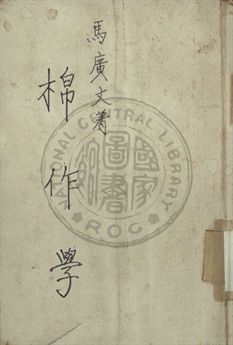 馬廣文著
棉作學
NATIONAL CENTRAL LIBRARY
R.O.C.
國家圖書館